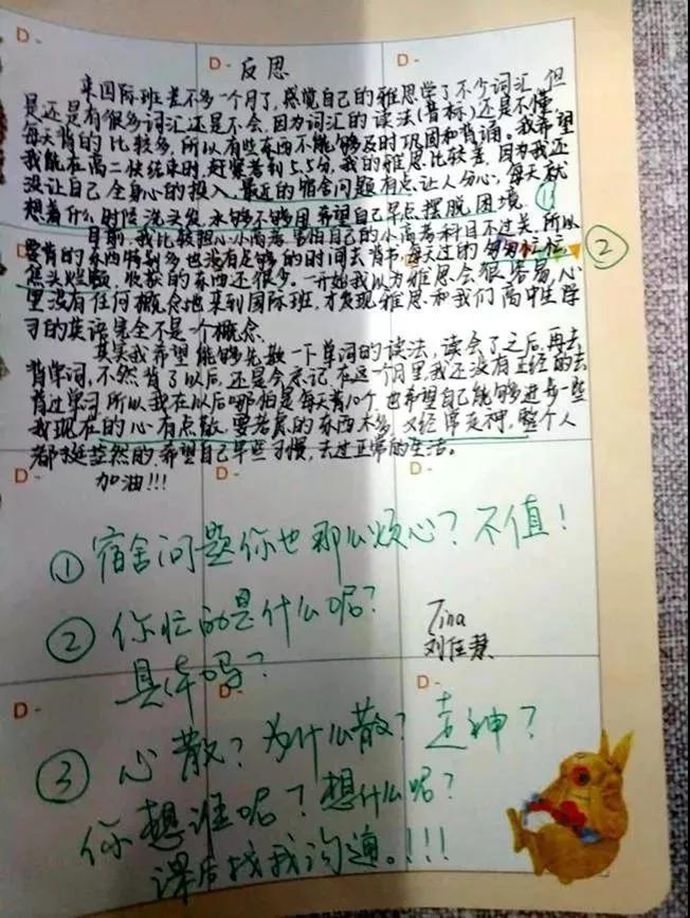 D-
D-
D-
反思
来国际班差不多一个月了,感觉自己的雅思学了不少词汇,但
是还是有很多词汇还是不会,因为词汇的读法(音标)还是不懂
每天背的比较多,所以有些东西不能够及时巩固和背诵。我希望
我能在高二快结束时,赶紧考到5.5分,我的雅思比较差,因为我还
没让自己全身心的投入,最近的宿舍问题有点让人分心,每天就
想着什么时候洗头发,水够不够用,希望自己早点摆脱困境。①
目前,我比较担心小高考,害怕自己的小高考科目不过关,所以
要背的东西特别多也没有足够的时间去背书,每天过的匆匆忙忙, ②
焦头烂额,收获的东西还很少。一开始我以为雅思会很容易,心
里没有任何概念地来到国际班,才发现雅思和我们高中生学
习的英语完全不是一个概念。
其实我希望能够先教一下单词的读法,读会了之后,再去
背单词,不然背了以后,还是会忘记,在这一个月里,我还没有正经的去
背过单词,所以我在以后哪怕是每天背10个,也希望自己能够进步一些
我现在的心有点散,要考虑的东西太多,又经常走神,整个人
都挺茫然的,希望自己早些习惯,去过正常的生活。
加油!!!
D-
D-
D-
① 宿舍问题你也那么烦心?不值!
② 你忙的是什么呢?
具体吗?
Tina
刘佳慧
D-
D-
D-
③ 心散?为什么散?走神?
你想谁呢?想什么呢?
课后找我沟通。!!!